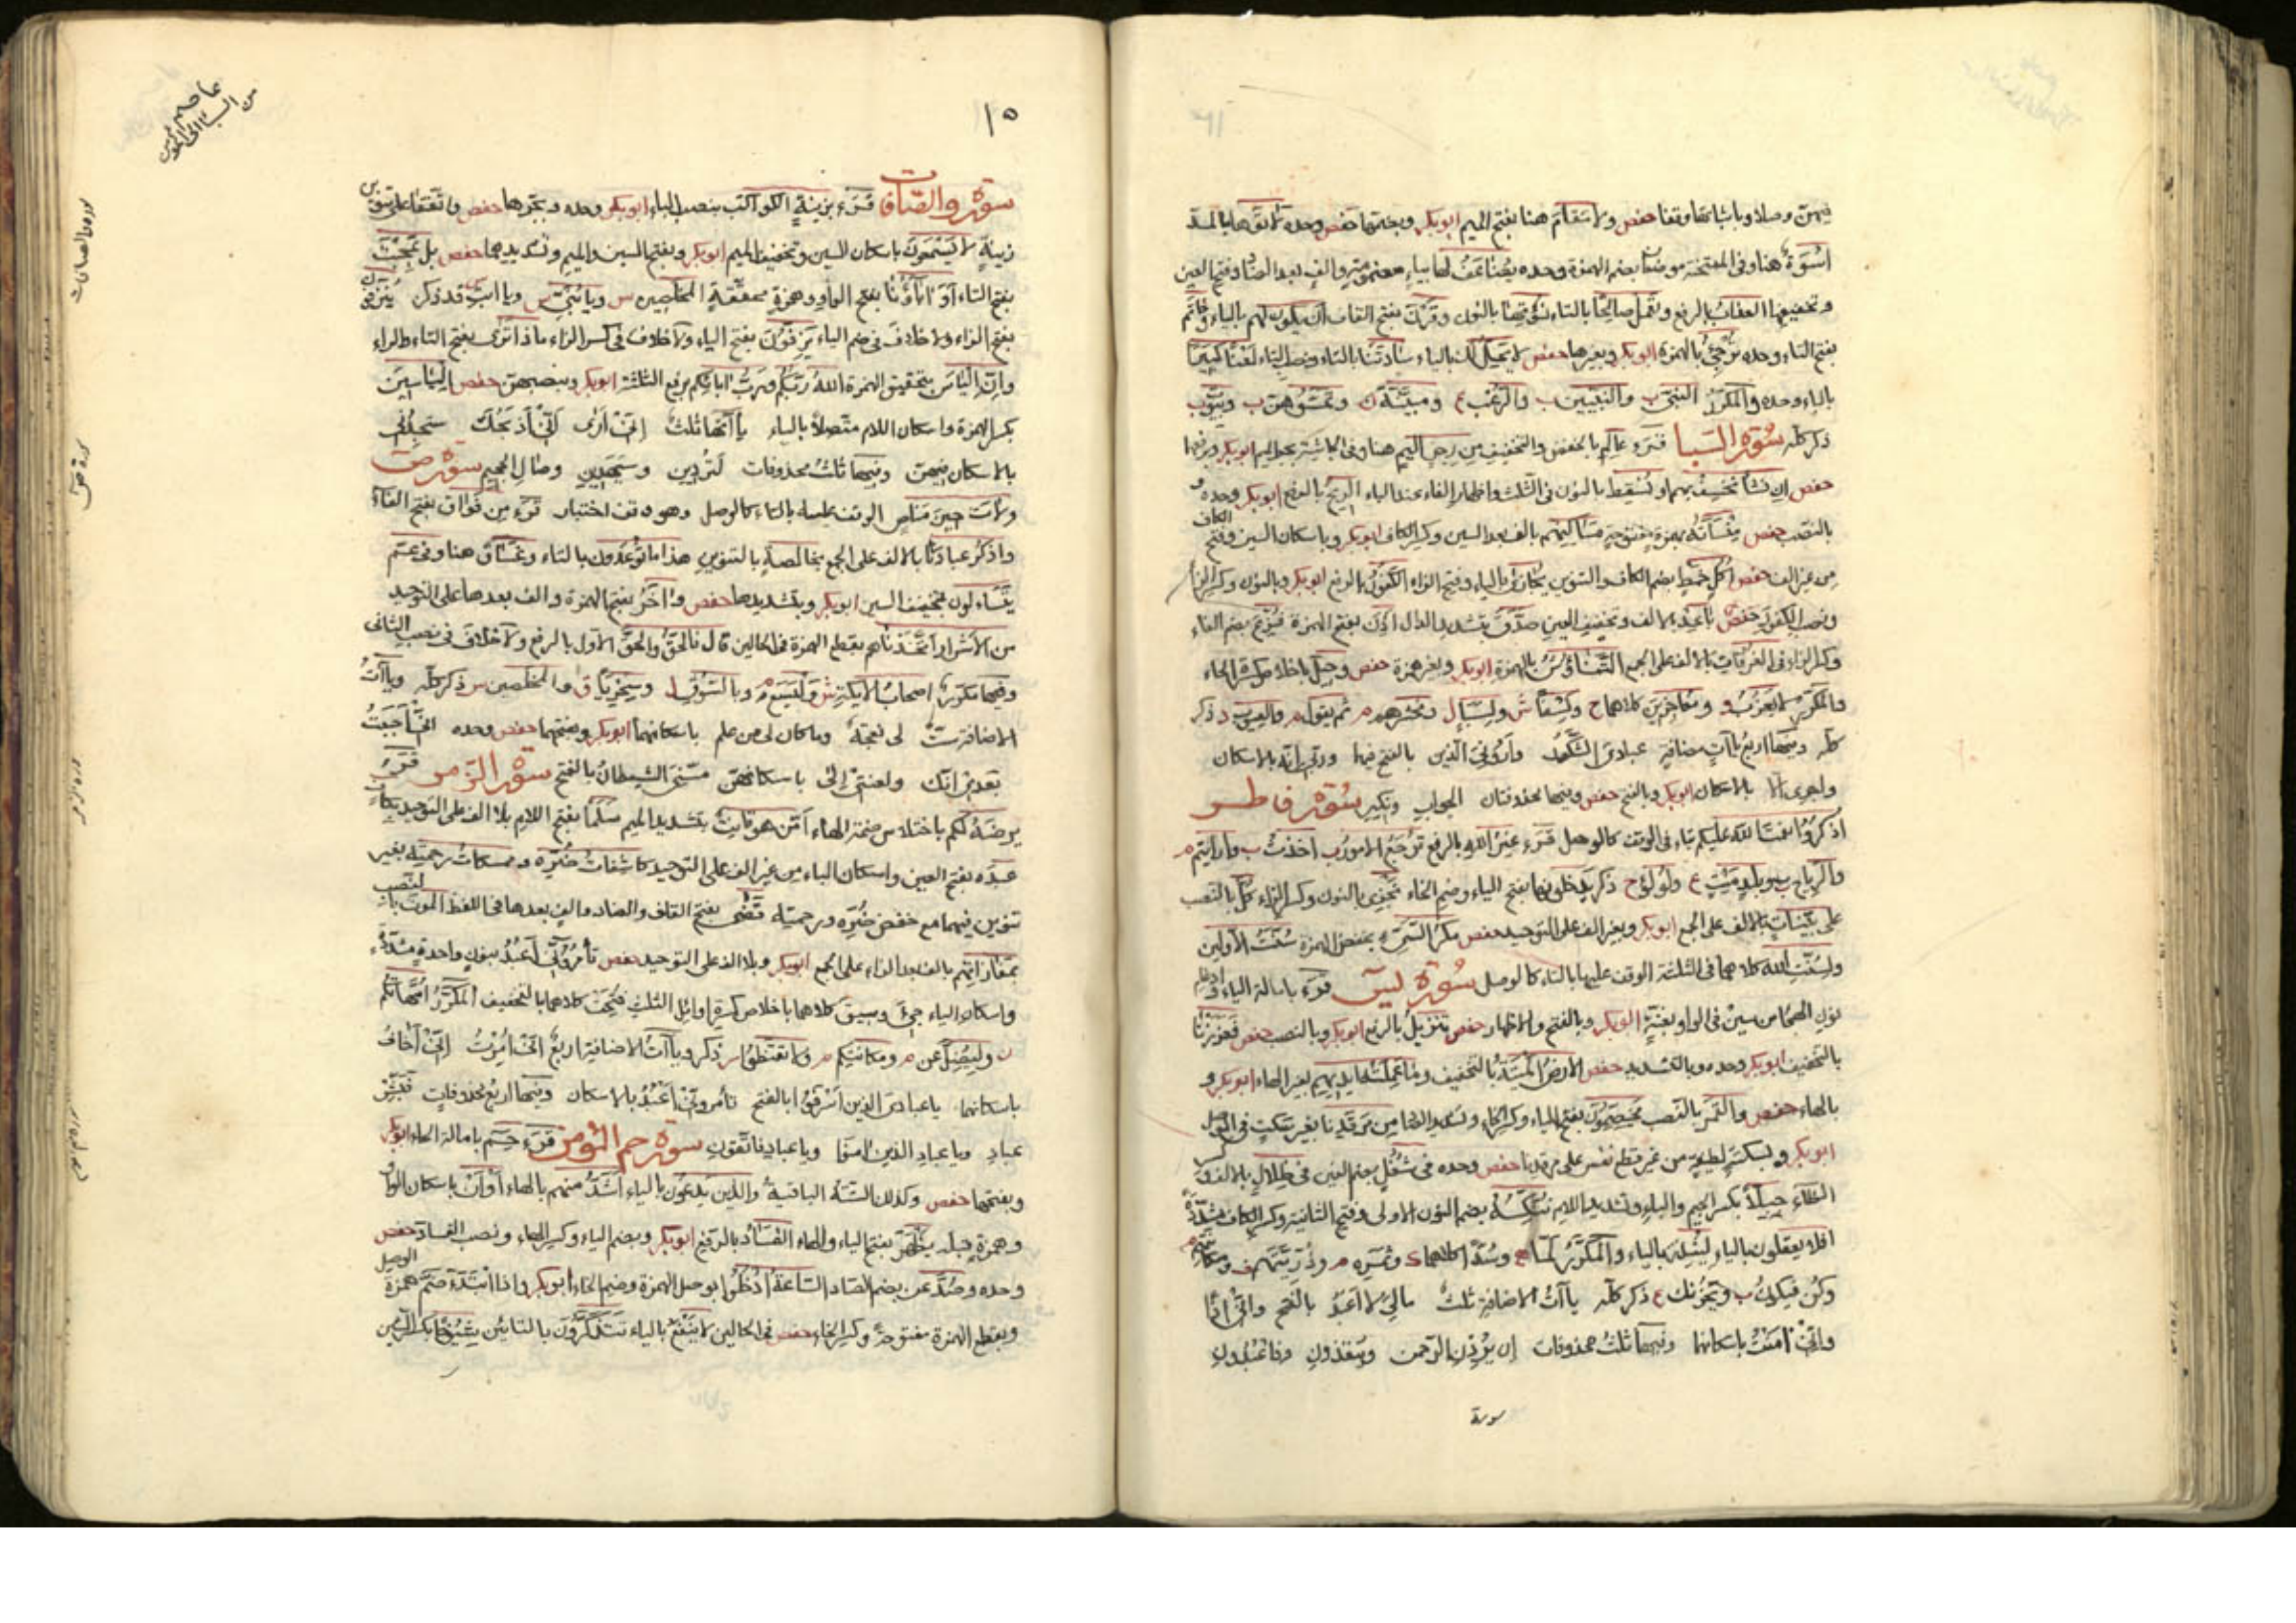 فيهن وصلا وباثباتها وقفا حفص ولا مقام هنا بفتح الميم ابوبكر وبضمها حفص وحده لاتوها بالمد
اسوة هنا وفى الممتحنة موضعان بضم الهمزة وحده يضاعف لها بياء مضمومة والف بعد الضاد وفتح العين
وتخفيفها العذاب بالرفع وتعمل صالحا بالتاء نؤتها بالنون وقرن بفتح القاف ان يكون لهم بالياء وخاتم
بفتح التاء وحده ترجئ بالهمزة ابوبكر وبغيرها حفص لا يحل لك بالياء سادتنا بالتاء ونصب التاء لعنا كبيرا
بالباء وحده والمكرر النبى ب والنبيين ب والرعب ع ومبينة ن وتمسوهن ب وبيوت ب
ذكر كله سورة السبا قرء عالم بالخفض والتخفيف من رجز اليم هنا وفى الجاثية بجر الميم ابوبكر وبرفعها
حفص ان نشأ نخسف بهم او نسقط بالنون فى الثلث واظهار الفاء عند الباء الريح بالرفع ابوبكر وحده و
بالنصب حفص منسأته بهمزة مفتوحة مساكنهم بالف بعد السين وكسر الكاف ابوبكر وباسكان السين وفتح الكاف
من غير الف حفص اكل خمط بضم الكاف والتنوين يجازى بالياء وفتح الزاء الكفور بالرفع ابوبكر وبالنون وكسر الزاء
ونصب الكفور حفص باعد بالف وتخفيف العين صدق بتشديد الدال اذن بفتح الهمزة فزع بضم الفاء
وكسر الزاء فى الغرفات بالالف على الجمع التناوش بالهمزة ابوبكر وبغير همزة حفص وحيل باخلاص كسرة الحاء
والمكرر لا يعزب و ومعاجزين كلاهما ح وكسفا ش ولسبا ل ونحشرهم م ثم يقول م والغيوب د ذكر
كله وفيها اربع ياآت مضافة عبادى الشكور وارونى الذين بالفتح فيها وربى انه بالاسكان
واجرى الا بالاسكان ابوبكر وبالفتح حفص وفيها محذوفتان الجواب ونكير سورة فاطر
اذكروا نعمت الله عليكم بتاء فى الوقف كالوصل قرء غير الله بالرفع ترجع الامور ب اخذت ب وارايتم م
والرياح ب وبلد ميت ع ولؤلؤ ح ذكر يدخلونها بفتح الياء وضم الخاء نجزى بالنون وكسر الزاء كل بالنصب
على بينات بالالف على الجمع ابوبكر وبغير الف على التوحيد حفص مكر السئ بخفض الهمزة سنت الاولين
ولسنت الله كلاهما فى الثلثة الوقف عليها بالتاء كالوصل سورة يس قرء بامالة الياء وادغام
نون الهجا من سين فى الواو بغنة ابوبكر وبالفتح والاظهار حفص تنزيل بالرفع ابوبكر وبالنصب حفص فعززنا
بالتخفيف ابوبكر وحده وبالتشديد حفص الارض الميتة بالتخفيف وما عملت ايديهم بغير الهاء ابوبكر و
بالهاء حفص والقمر بالنصب يخصمون بفتح الياء وكسر الخاء وتشديد الصاد من مرقدنا بغير سكت فى الوصل
ابوبكر وبسكتة لطيفة من غير قطع نفس على مرقدنا حفص وحده فى شغل بضم الغين فى ظلال بالالف و كسر
الظاء جبلا بكسر الجيم والباء وتشديد اللام ننكسه بضم النون الاولى وفتح الثانية وكسر الكاف مشددة
افلا يعقلون بالياء لينذر بالياء والمكرر لما ح وسدا كلاهما ك وثمره م وذريتهم ف ومكانتهم م
وكن فيكون ب ويحزنك ع ذكر كله ياآت الاضافة ثلث مالى لا اعبد بالفتح وانى اذا
وانى امنت باسكانها وفيها ثلث محذوفات ان يردن الرحمن وينقذون وفاعبدون
سورة
عاصم
من السبا الى المؤمن
١٥
سورة والصافات قرء بزينة الكواكب بنصب الباء ابوبكر وحده وبجرها حفص واتفقا على تنوين
زينة لا يسمعون باسكان السين وتخفيف الميم ابوبكر وبفتح السين والميم وتشديدهما حفص بل عجبت
بفتح التاء اوَ اباؤنا بفتح الواو وهمزة محققة المخلصين س ويا بنى س ويا ابت ى قد ذكر ينزفون ك
بفتح الزاء ولا خلاف فى ضم الياء يزفون بفتح الياء ولا خلاف فى كسر الزاء ماذا ترى بفتح التاء والراء
وان الياس بتحقيق الهمزة الله ربكم ورب ابائكم برفع الثلثة ابوبكر وبنصبهن حفص الياسين
بكسر الهمزة واسكان اللام متصلا بالياء ياآتها ثلث انى ارى انى اذبحك ستجدنى
بالاسكان فيهن وفيها ثلث محذوفات لتردين وسيهدين وصال الجحيم سورة ص
ولات حين مناص الوقف عليه بالتاء كالوصل وهو وقف اختبار قرء من فواق بفتح الفاء
واذكر عبادنا بالالف على الجمع بخالصة بالتنوين هذا ما توعدون بالتاء وغساق هنا وفى عم
يتساءلون بتخفيف السين ابوبكر وبتشديدها حفص واخر بفتح الهمزة والف بعدها على التوحيد
من الاشرار اتخذناهم بقطع الهمزة فى الحالين قال فالحق والحق الاول بالرفع ولا خلاف فى نصب الثانى
وفيها مكرر اصحاب الايكة ش واليسع م وبالسوق ل وسخريا ق والمخلصين س ذكر كله وياآت
الاضافة ست لى نعجة وما كان لى من علم باسكانهما ابوبكر وبفتحهما حفص وحده انى احببت
بعدى انك ولعنتى الى باسكانهن مسنى الشيطان بالفتح سورة الزمر قرء
يرضه لكم باختلاس ضمة الهاء امن هو قانت بتشديد الميم سلما بفتح اللام بلا الف على التوحيد بكاف
عبده بفتح العين واسكان الباء من غير الف على التوحيد كاشفات ضره وممسكات رحمته بغير
تنوين فيهما مع خفض ضره ورحمته قضى بفتح القاف والضاد والف بعدها فى اللفظ الموت بالنصب
بمفازاتهم بالف بعد الزاء على الجمع ابوبكر وبلا الف على التوحيد حفص تأمرونى اعبد بنون واحدة مشددة
واسكان الياء جئ وسيق كلاهما باخلاص كسرة اوائل الثلث فتحت كلاهما بالتخفيف المكرر امهاتكم
ن وليضل عن م ومكانتكم م ولا تقنطوا ر ذكر وياآت الاضافة اربع انى امرت انى اخاف
باسكانهما يا عبادى الذين اسرفوا بالفتح تأمرونى اعبد بالاسكان وفيها اربع محذوفات فبشر
عباد ويا عباد الذين امنوا ويا عباد فاتقون سورة حم المؤمن قرء حم بامالة الحاء ابوبكر
وبفتحها حفص وكذلك الستة الباقية والذين يدعون بالياء اشد منهم بالهاء او ان باسكان الواو
وهمزة قبله يظهر بفتح الياء والهاء الفساد بالرفع ابوبكر وبضم الياء وكسر الهاء ونصب الفساد حفص
وحده وصد عن بضم الصاد الساعة ادخلوا بوصل الهمزة وضم الخاء ابوبكر واذا ابتدء ضم همزة الوصل
وبقطع الهمزة مفتوحة وكسر الخاء حفص فى الحالين لا ينفع بالياء تتذكرون بالتائين شيوخا بكسر الشين
سورة والصافات
سورة ص
سورة الزمر